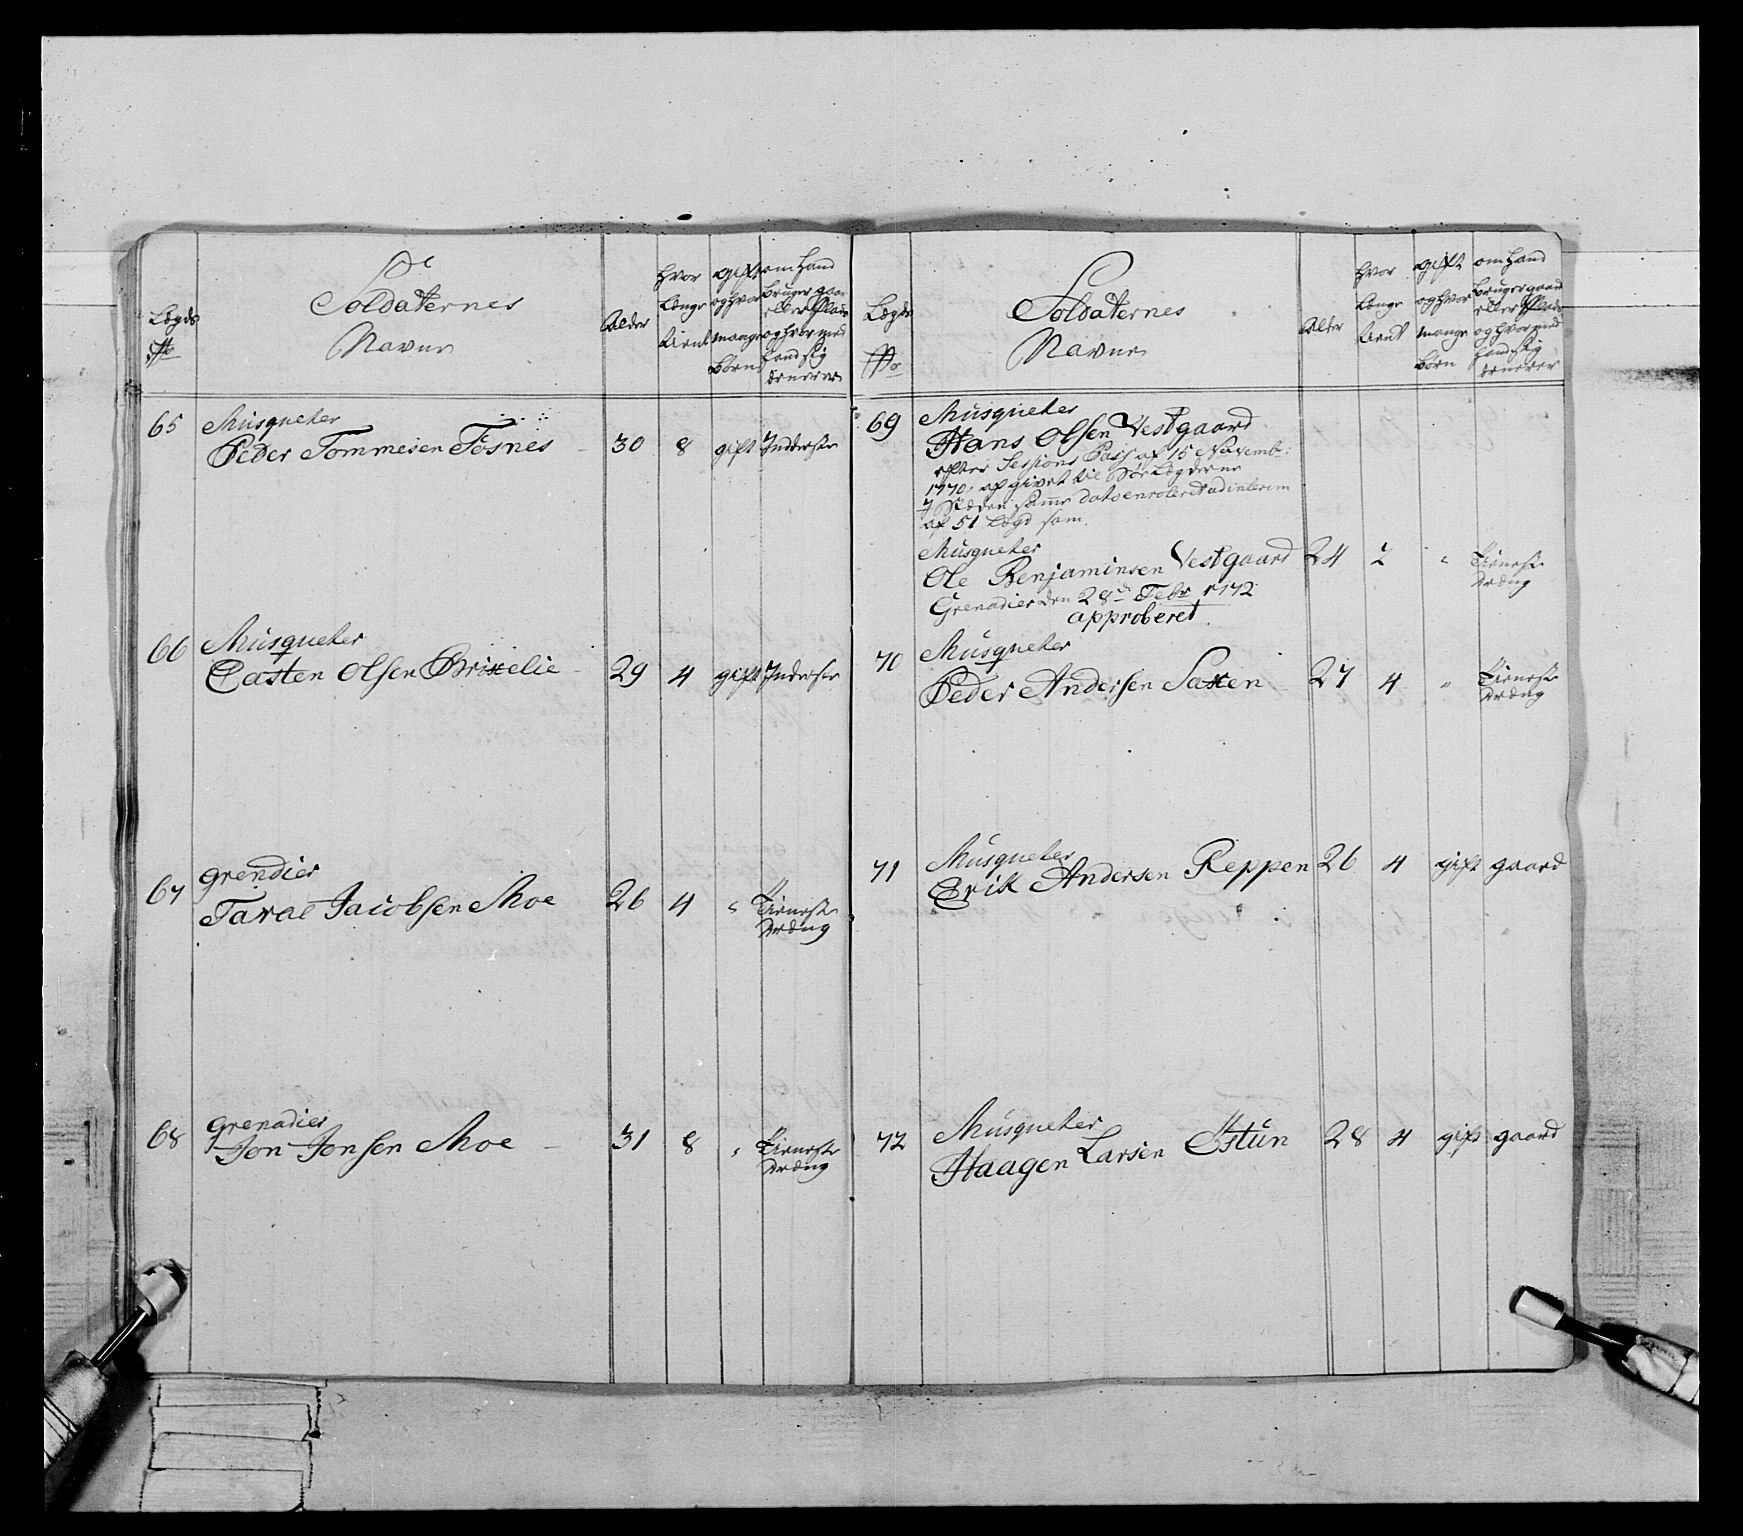 Lægds
No
Soldaternes
Navne
Alder
hvor
længe
tient
gift
og hvor
mange
børn
om hand
bruger gaar
eller Plads
og hvor med
hand sig
ernerer
65 Musqueter
Peder Tommesen Fosnes - 30 8 gift Inderste
66 Musqueter
Casten Olsen Brixelie - 29 4 gift Inderste
67 Grendier
Taral Jacobsen Moe 26 4 " Tieneste
dræng
68 Grenadier
Jon Jonsen Moe - 31 8 " Tieneste
dræng
Lægds
No
Soldaternes
Navne
Alder
hvor
længe
tient
gift
og hvor
mange
børn
om hand
bruger gaard
eller Plads
og hvor med
hand sig
ernerer
69 Musqueter
Hans Olsen Vestgaard
efter Sessions Pass af 15 Novemb:
1770, af givet til Søe Lægderne
I Stæden samme dato enroleret ad interim
af 51 Lægd som
Musqueter
Ole Benjaminsen Vestgaard 24 2 " Tieneste
dræng
Grenadier den 28d Febr 1772
approberet.
70 Musqueter
Peder Andersen Saxen - 27 4 " Tieneste
dræng
71 Musqueter
Erik Andersen Reppen 26 4 gift gaard
72 Musqueter
Haagen Larsen Østun 28 4 gift gaard